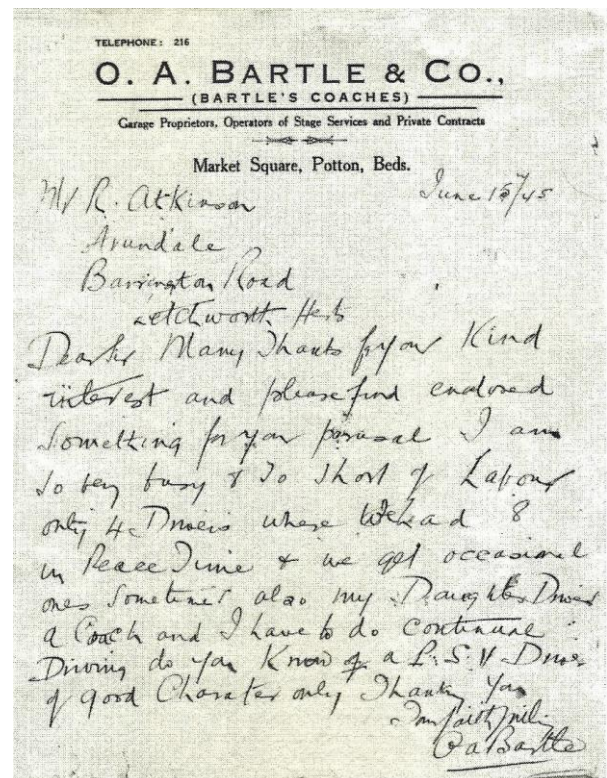 TELEPHONE: 216
O. A. BARTLE & CO.,
(BARTLE'S COACHES)
Garage Proprietors, Operators of Stage Services and Private Contracts
Market Square, Potton, Beds.
June 15/45
Mr R. Atkinson
Arundale
Barrington Road
Letchworth Herts
Dear Sir Many Thanks for your Kind
interest and please find enclosed
Something for your perusal I am
So very busy & So Short of Labour
only 4 Drivers where We had 8
in Peace Time & we get occasional
ones Sometimes also my Daughter Drives
a Coach and I have to do continual
Driving do you Know of a P.S.V Driver
of good Charater only Thanking You
I am faithfully
O a Bartle